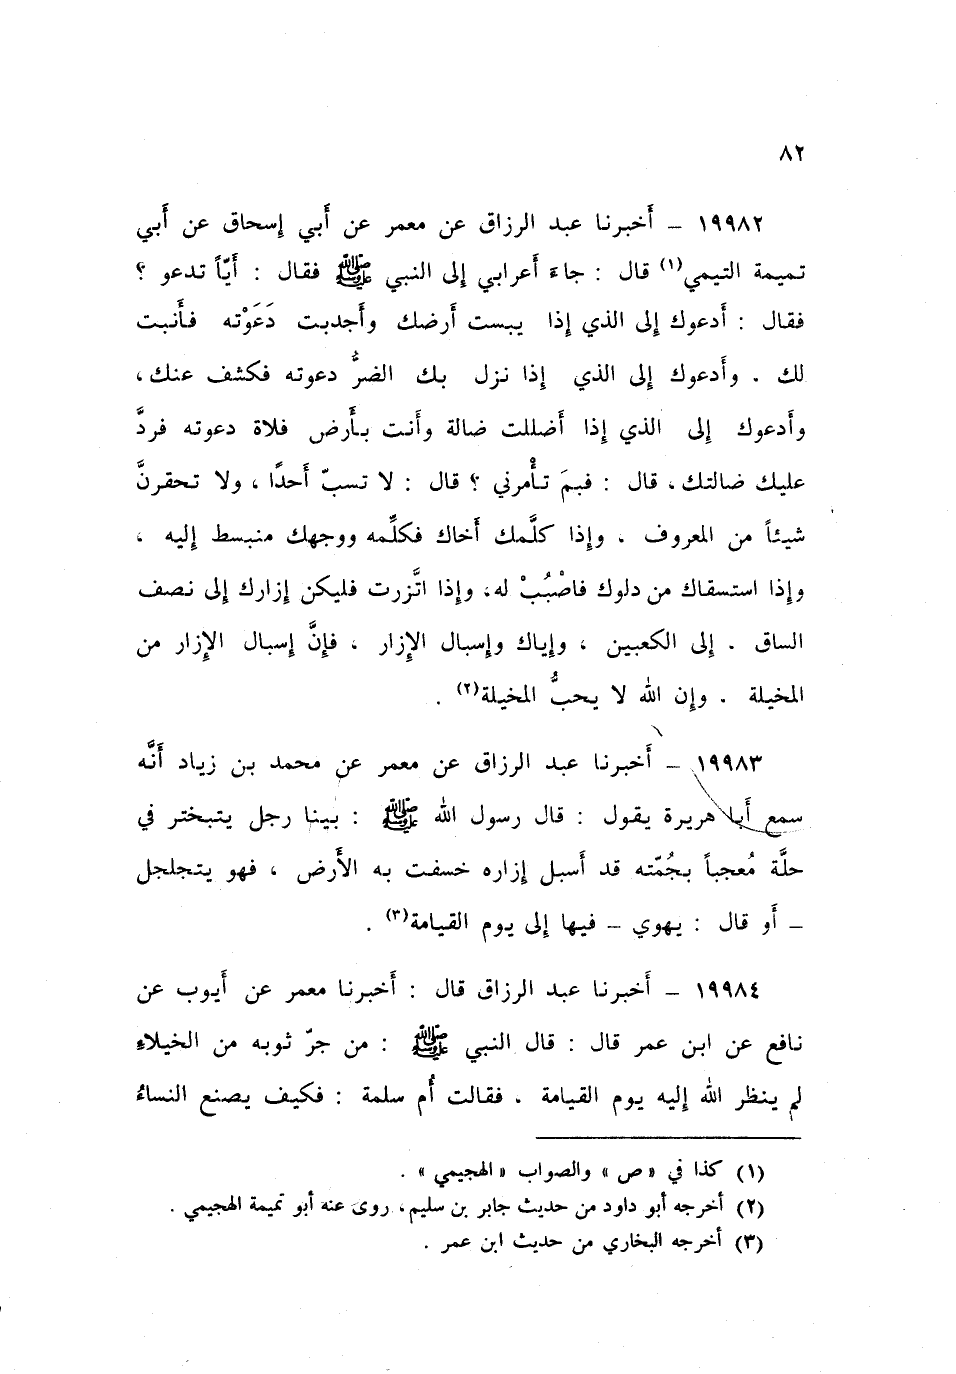 ٨٢
١٩٩٨٢ – أَخبرنا عبد الرزاق عن معمر عن أَبي إسحاق عن أَبي
تميمة التيمي(١) قال : جاءَ أَعرابي إلى النبي ﷺ فقال : أَيّاً تدعو ؟
فقال : أَدعوك إلى الذي إذا يبست أَرضك وأَجدبت دَعَوْته فأَنبت
لك . وأَدعوك إلى الذي إذا نزل بك الضرُّ دعوته فكشف عنك ،
وأَدعوك إلى الذي إذا أَضللت ضالة وأَنت بأَرض فلاة دعوته فردَّ
عليك ضالتك ، قال : فبمَ تأْمرني ؟ قال : لا تسبّ أَحدًا ، ولا تحقرنَّ
شيئاً من المعروف ، وإذا كلَّمك أَخاك فكلِّمه ووجهك منبسط إليه ،
وإذا استسقاك من دلوك فاصْبُبْ له ، وإذا اتَّزرت فليكن إزارك إلى نصف
الساق . إلى الكعبين ، وإياك وإسبال الإزار ، فإنَّ إسبال الإزار من
المخيلة . وإن الله لا يحبُّ المخيلة(٢) .
١٩٩٨٣ – أَخبرنا عبد الرزاق عن معمر عن محمد بن زياد أَنَّه
سمع أَبا هريرة يقول : قال رسول الله ﷺ : بينا رجل يتبختر في
حلَّة مُعجباً بجُمّته قد أَسبل إزاره خسفت به الأَرض ، فهو يتجلجل
– أَو قال : يهوي – فيها إلى يوم القيامة(٣) .
١٩٩٨٤ – أَخبرنا عبد الرزاق قال : أَخبرنا معمر عن أَيوب عن
نافع عن ابن عمر قال : قال النبي ﷺ : من جرّ ثوبه من الخيلاءِ
لم ينظر الله إليه يوم القيامة . فقالت أُم سلمة : فكيف يصنع النساءُ
(١) كذا في « ص » والصواب « الهجيمي » .
(٢) أخرجه أبو داود من حديث جابر بن سليم ، روى عنه أبو تميمة الهجيمي .
(٣) أخرجه البخاري من حديث ابن عمر .